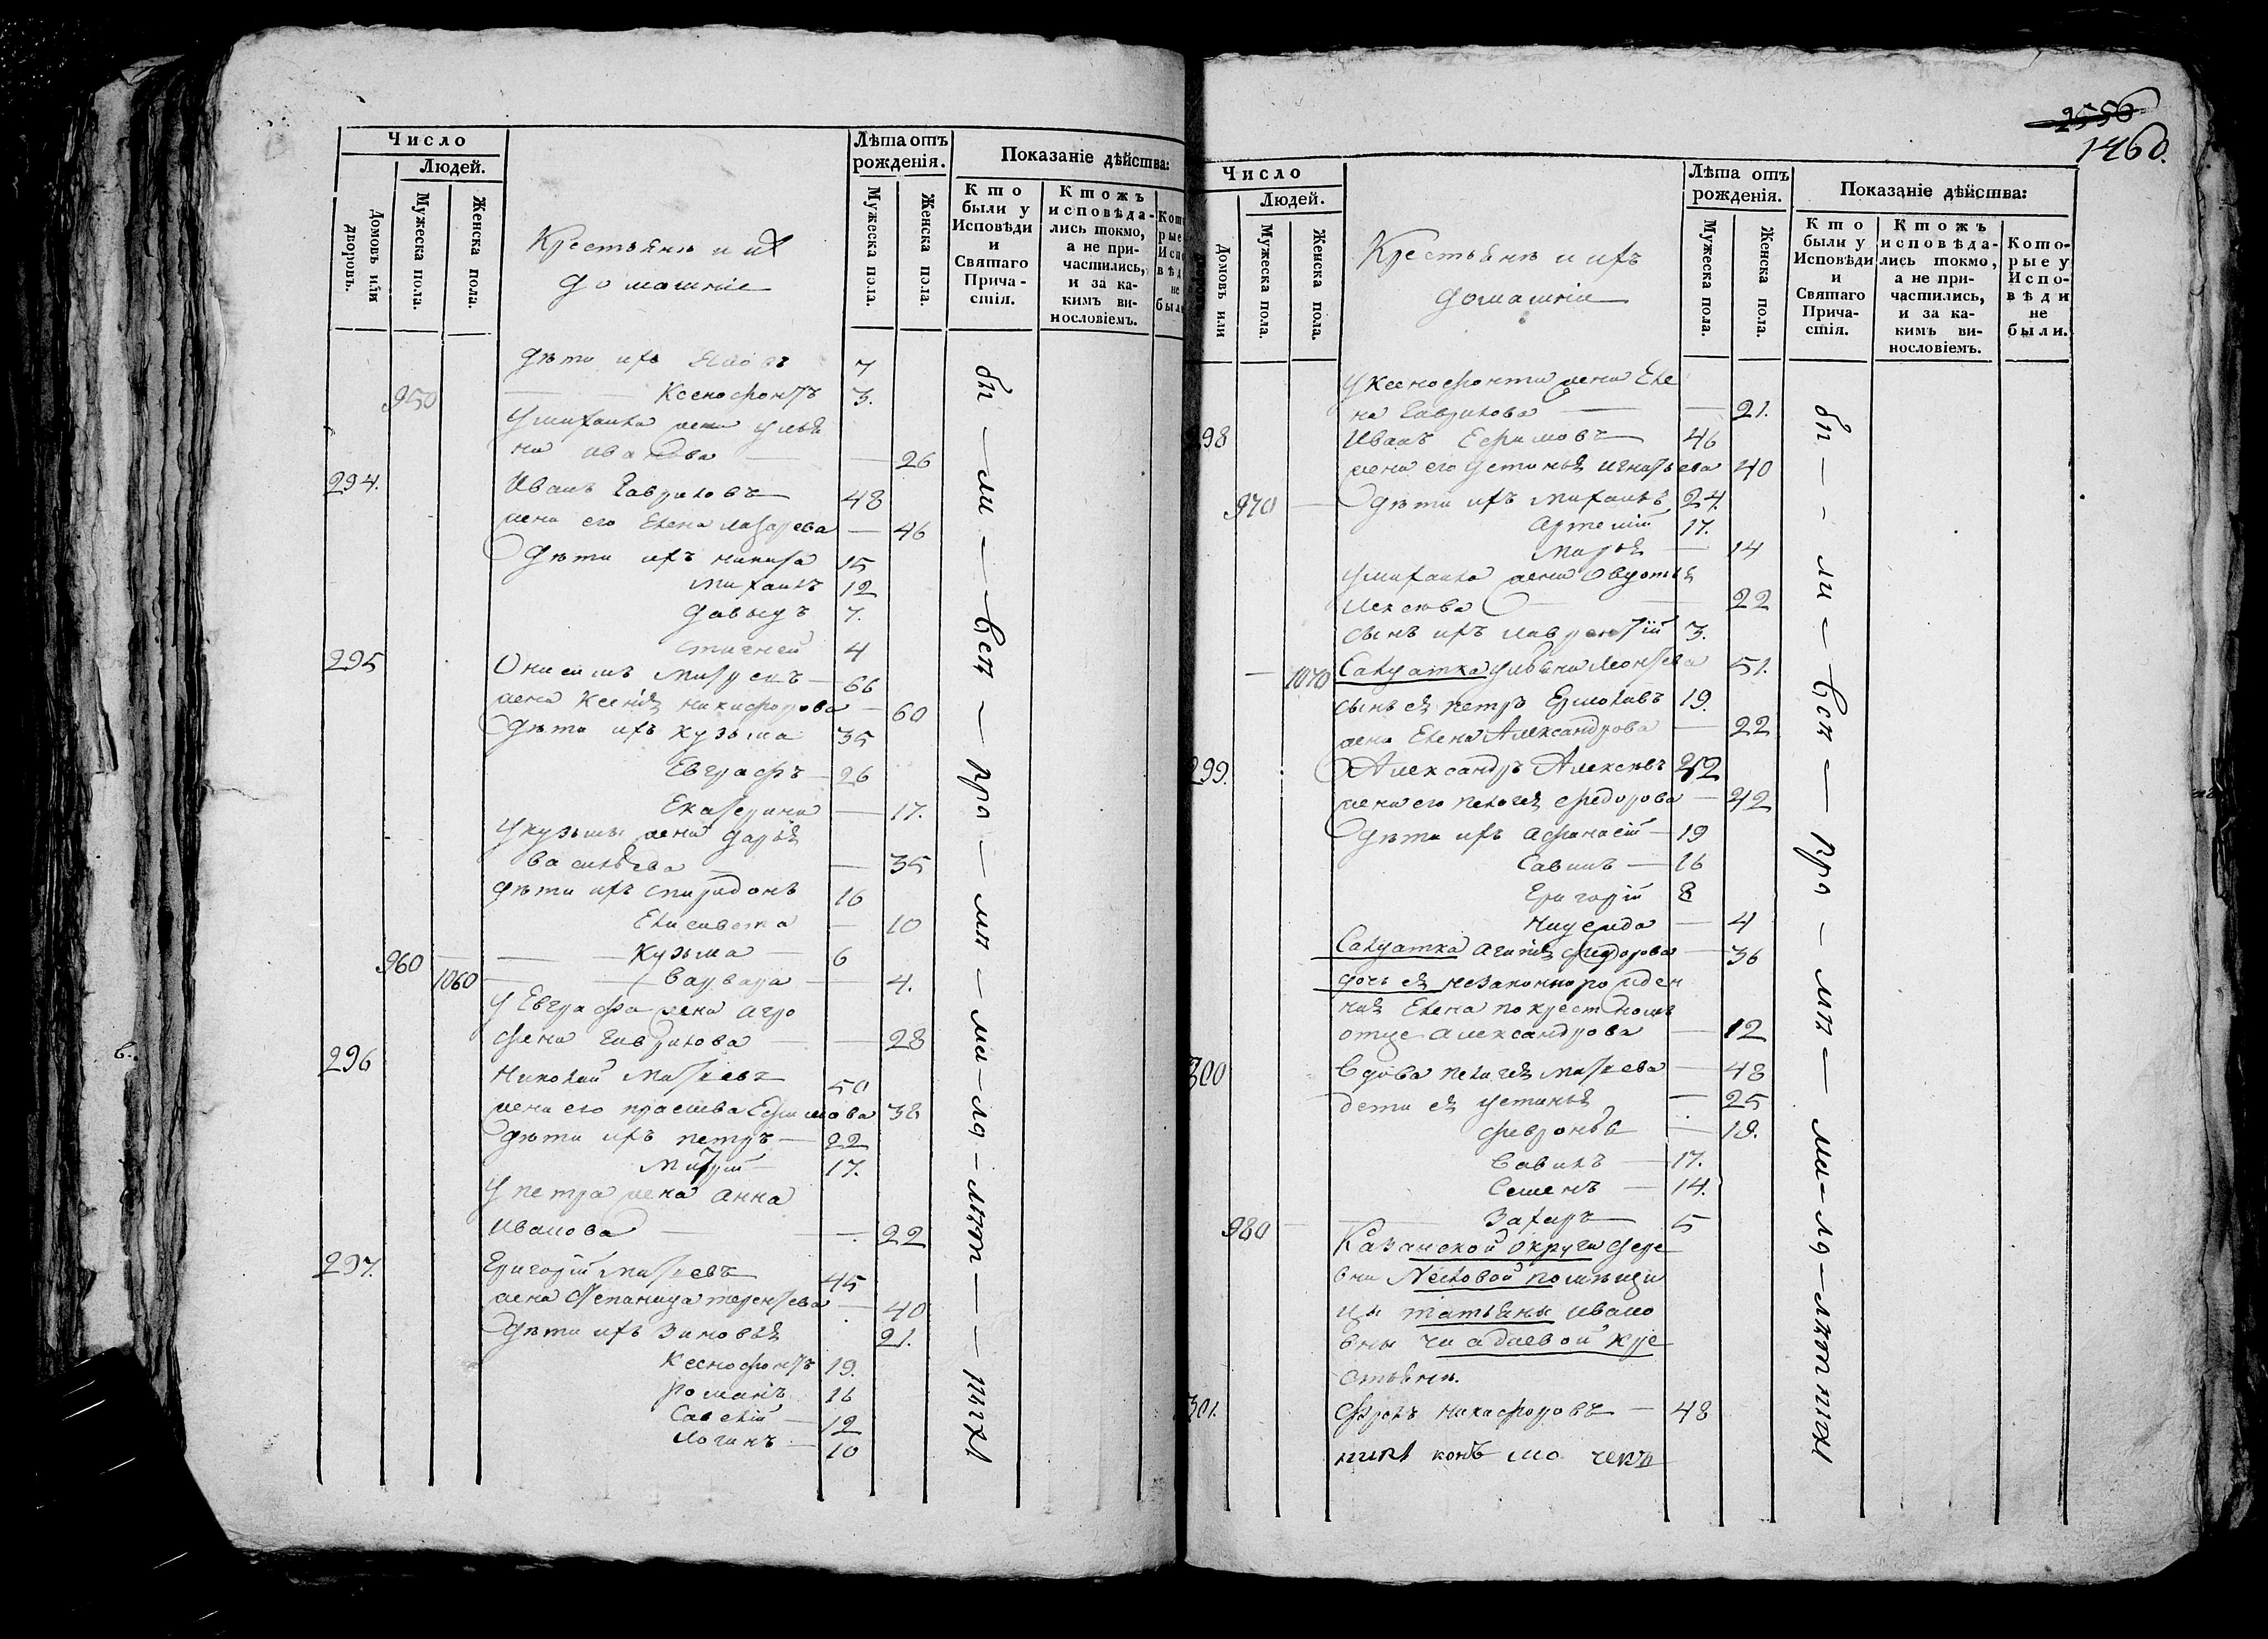 Число
Людей.
Домовъ или дворовъ.
Мужеска пола.
Женска пола.
Крестьяне и их
домашніе
Лѣта отъ
рожденія.
Мужеска пола.
Женска пола.
Показаніе дѣйства:
Кто были у Исповѣди и Святаго Причастія.
Ктожъ исповѣдались токмо, а не причастились, и за какимъ винословіемъ.
дѣти ихъ 7
950 Ксенофонтъ 3.
У михаила жена улья
на иванова 26
294. Иванъ Гавриловъ 48
жена его Елена лазарева 46
дѣти ихъ никита 15
михаилъ 12
давыдъ 7.
4
295 Онисимъ 66
жена Ксенія никифорова 60
дѣти ихъ кузьма 35
Евграфъ 26
Екатерина 17.
У кузьмы жена дарья
васильева 35
дѣти ихъ спиридонъ 16
Елисавета 10
960 кузьма 6
1060 варвара 4.
У Евграфа жена агро
фена гаврилова 28
296 Николай матвѣевъ 50
жена его Ефимова 38
дѣти ихъ петръ 22
17.
У петра жена анна
иванова 22
297. Григорій матвѣевъ 45
жена Степанида терентева 40
дѣти ихъ Зиновья 21.
Ксенофонтъ 19.
романъ 16
Савелій 12
логинъ 10
бы – ли – всѣ – про – мѣ – ма – ла – лѣт – – ныхъ
2556
1460.
Число
Людей.
Домовъ или
Мужеска пола.
Женска пола.
Крестьяне и ихъ
домашніе
Лѣта отъ
рожденія.
Мужеска пола.
Женска пола.
Показаніе дѣйства:
Кто были у Исповѣди и Святаго Причастія.
Ктожъ исповѣдались токмо, а не причастились, и за какимъ винословіемъ.
Которые у Исповѣди не были.
У Ксенофонта жена Еле
на Гаврилова 21.
298 Иванъ Ефимовъ 46
жена его устинья игнатьева 40
970 дѣти ихъ михаилъ 24.
артемій 17.
марья 14
У михаила жена Овдотья
Алексѣева 22
сынъ ихъ лаврентій 3.
1070 Салдатка ульяна леонтева 51.
сынъ ея петръ Ермолаевъ 19.
жена Елена Александрова 22
299. Александръ Алексѣевъ 42
жена его пелагея федорова 42
дѣти ихъ афанасій 19
Савинъ 16
Григорій 8
4
Салдатка агапія федорова 36
дочь ея незаконнорожден
ная Елена по крестному
отцу александрова 12
300 Вдова пелагея матвѣева 48
дети ея устинья 25
февронья 19.
Савилъ 17.
Семенъ 14.
980 Захаръ 5
Казанской округи дере
вни помѣщи
цы татьяны ивано
вны чаадаевой кре
стьяне.
301. Фролъ никифоровъ 48
бы – ли – всѣ – про – мѣ – ма – ла – лѣтныхъ